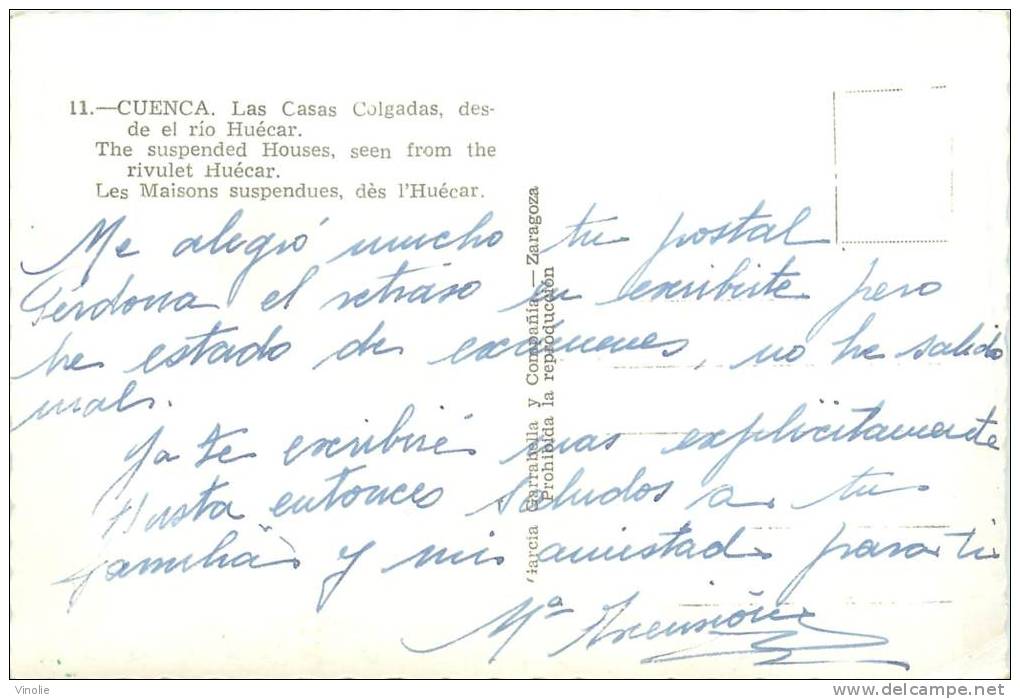 11.—CUENCA. Las Casas Colgadas, des-
de el río Huécar.
The suspended Houses, seen from the
rivulet Huécar.
Les Maisons suspendues, dès l'Huécar.
García Garrabella y Compañía.—Zaragoza
Prohibida la reproducción
Me alegró mucho tu postal
Perdona el retraso en escribirte pero
he estado de exámenes, no he salido
mal.
Ya te escribiré mas explicitamente
Hasta entonces saludos a tu
familia y mi amistad para ti
Mª Ascensión
Vinolie
delcampe.net